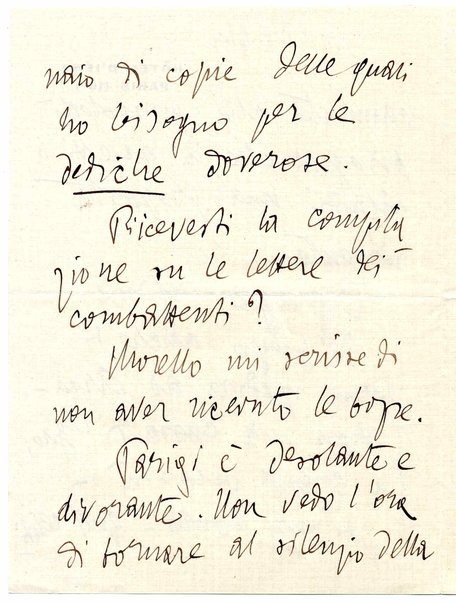 naio di copie delle quali
ho bisogno per le
dediche doverose.
Ricevesti la compila
zione su le lettere dei
combattenti?
Morello mi scrisse di
non aver ricevuto le bozze.
Parigi è desolante e
divorante. Non vedo l'ora
di tornare al silenzio della